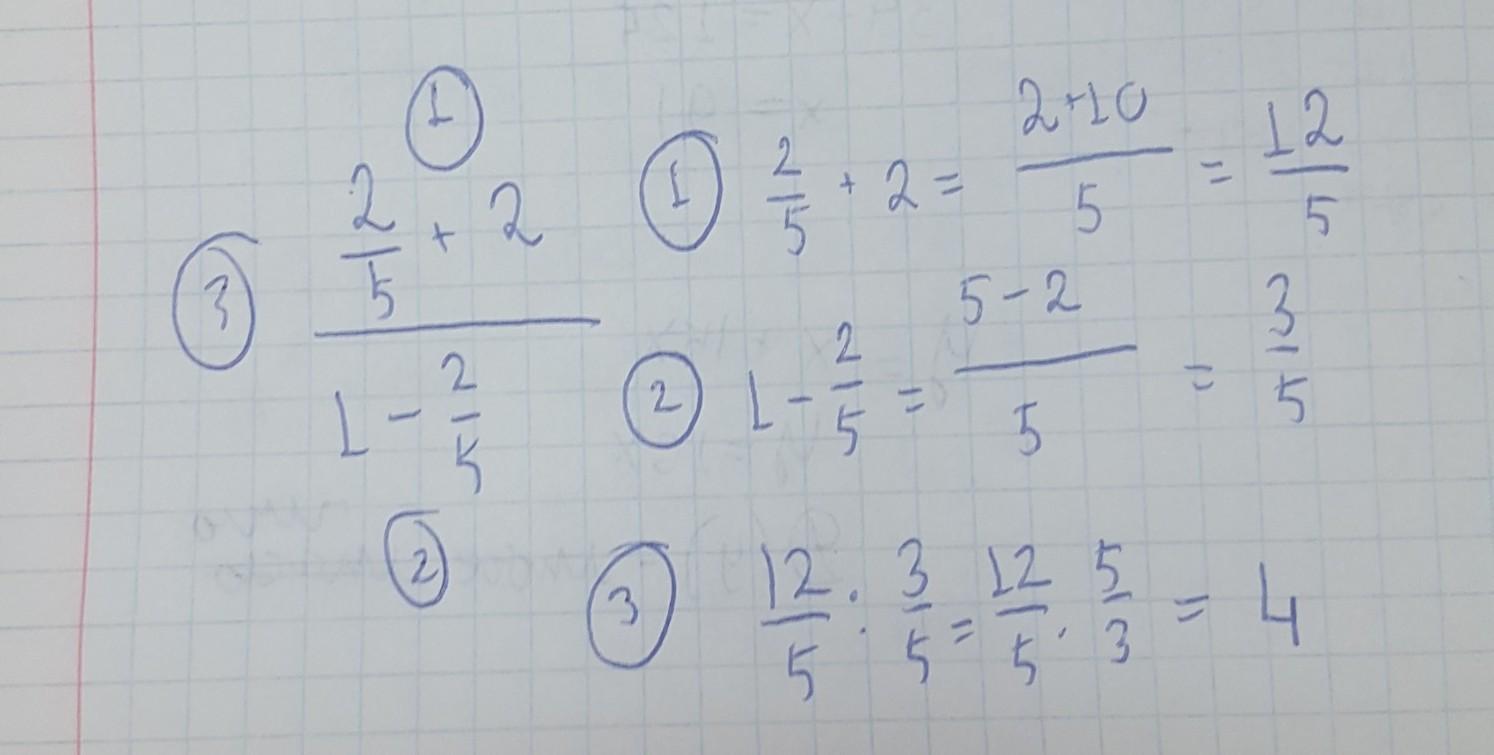 ①
③ 2/5 + 2
1 - 2/5
②
① 2/5 + 2 = 2+10/5 = 12/5
② 1 - 2/5 = 5-2/5 = 3/5
③ 12/5 : 3/5 = 12/5 · 5/3 = 4